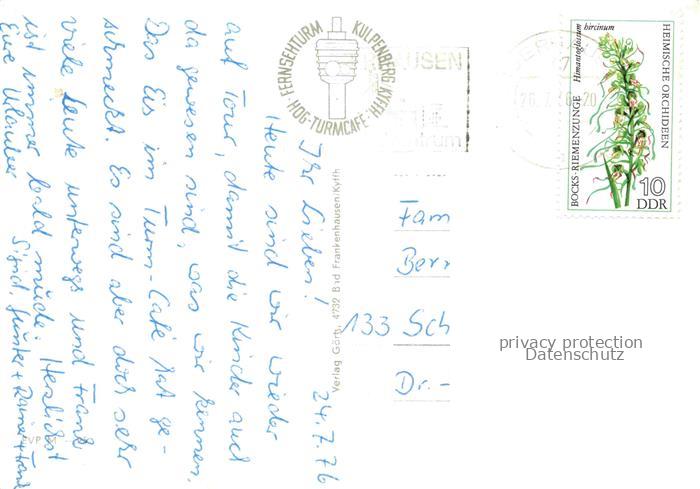 24.7.76
Ihr Lieben!
Heute sind wir wieder
auf Tour, damit die Kinder auch
da gewesen sind, was wir kennen.
Das Eis im Turm-Café hat ge-
schmeckt. Es sind aber doch sehr
viele Leute unterwegs und Frank
ist immer bald müde. Herzlichst
Eure Urlauber
Günter + Rainer + Frank
FERNSEHTURM KULPENBERG KYFFH.
HOG-TURMCAFE
Verlag Görtz, 4732 Bad Frankenhausen/Kyffh
HAUSEN
26.7.
-20
BOCKS-RIEMENZUNGE Himantoglossum hircinum
HEIMISCHE ORCHIDEEN
10
DDR
Fam
Berr
133 Sch
Dr.-
privacy protection
Datenschutz